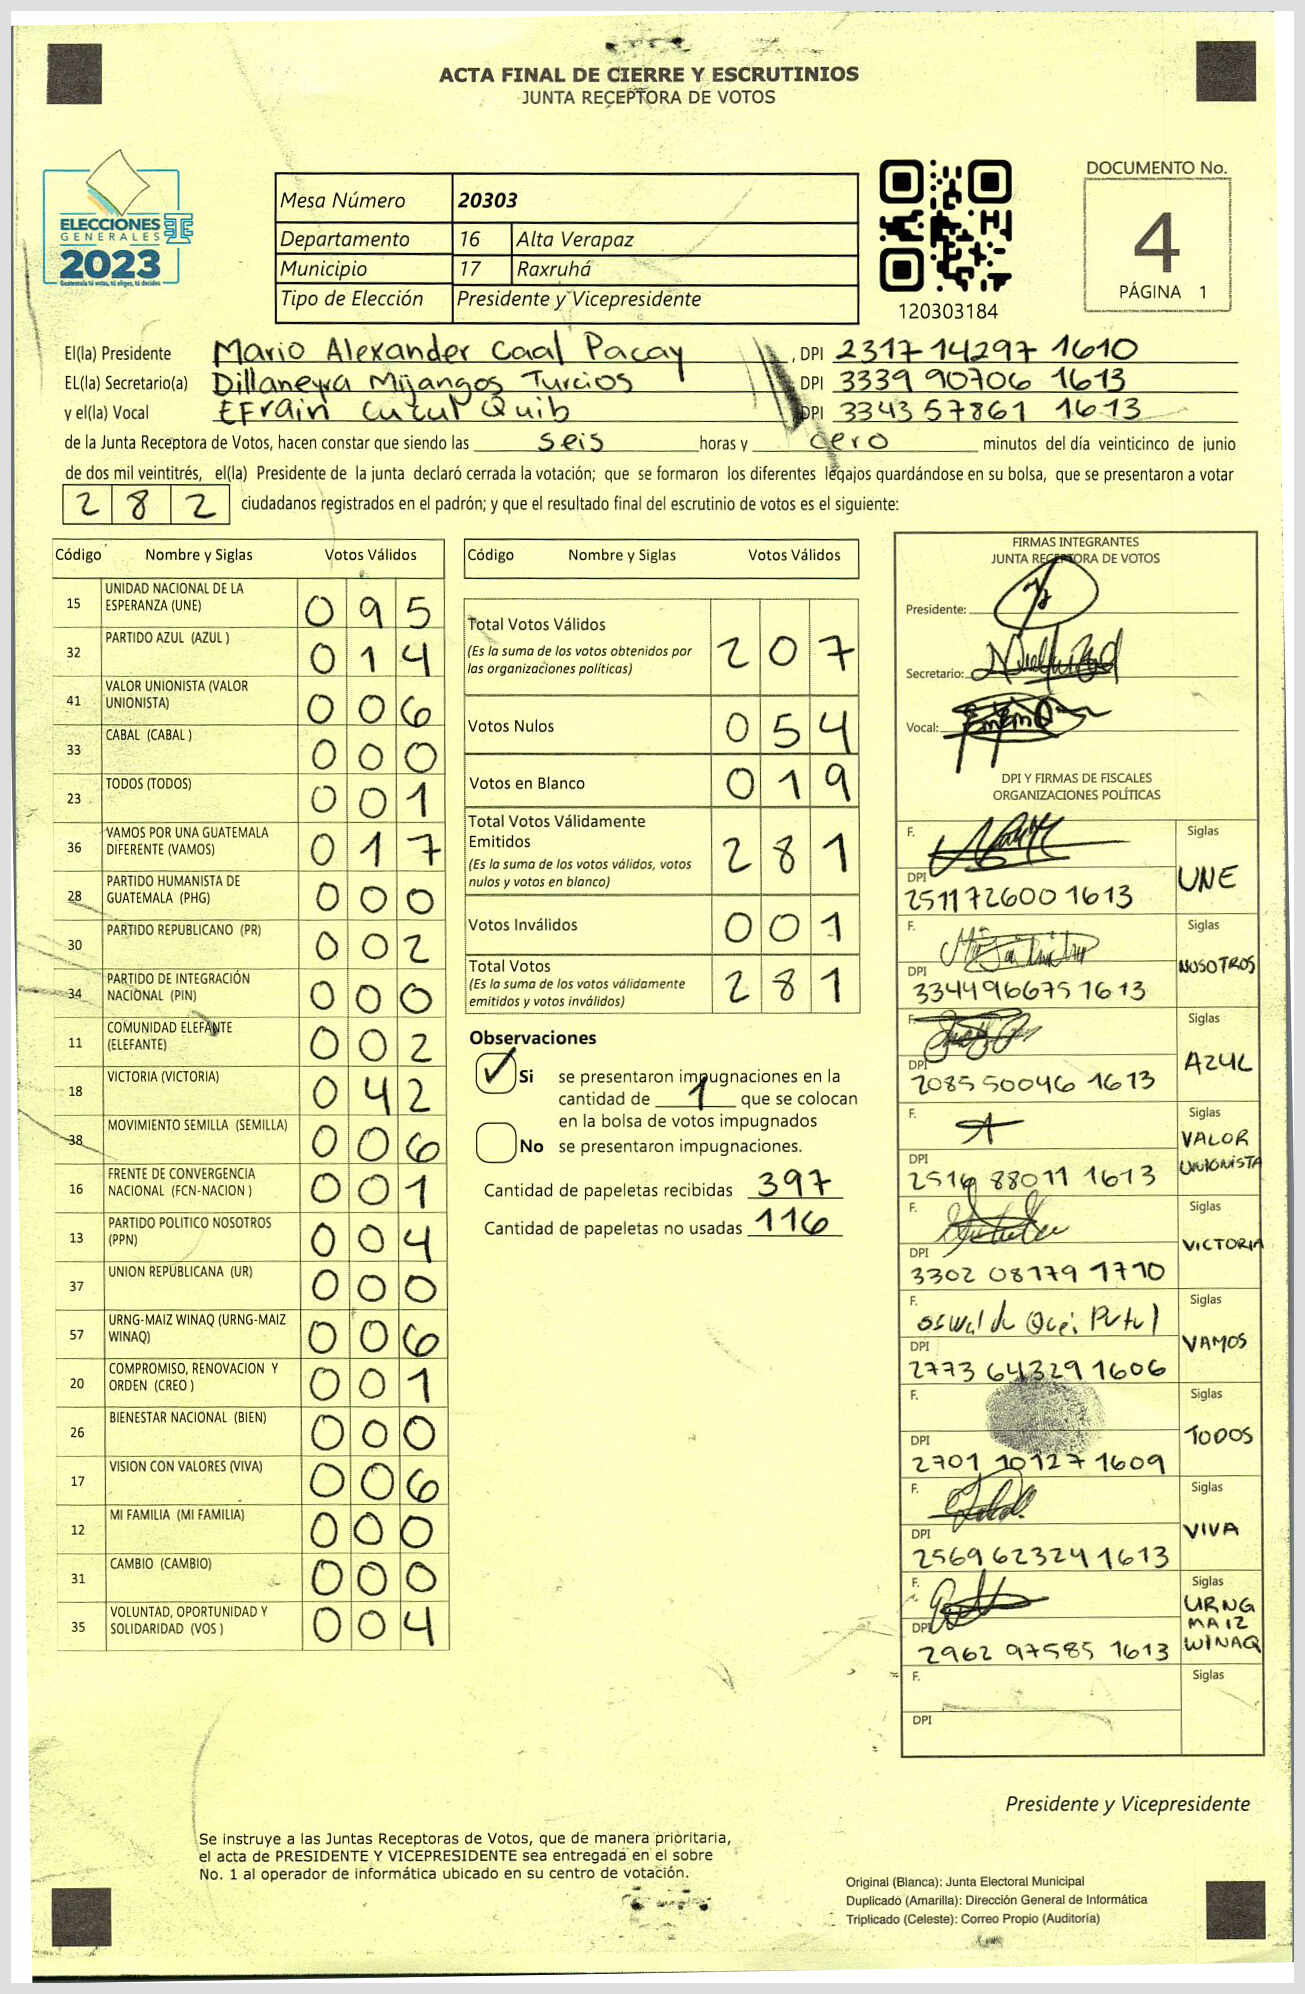 ACTA FINAL DE CIERRE Y ESCRUTINIOS
JUNTA RECEPTORA DE VOTOS
ELECCIONES
GENERALES
2023
Guatemala tú votas, tú eliges, tú decides
Mesa Número 20303
Departamento 16 Alta Verapaz
Municipio 17 Raxruhá
Tipo de Elección Presidente y Vicepresidente
120303184
DOCUMENTO No.
4
PÁGINA 1
El(la) Presidente Mario Alexander Caal Pacay, DPI 2317 14297 1610
EL(la) Secretario(a) Dillaneyra Mijangos Turcios DPI 3339 90706 1613
y el(la) Vocal EFrain Cucul Quib DPI 3343 57861 1613
de la Junta Receptora de Votos, hacen constar que siendo las seis horas y cero minutos del día veinticinco de junio
de dos mil veintitrés, el(la) Presidente de la junta declaró cerrada la votación; que se formaron los diferentes legajos guardándose en su bolsa, que se presentaron a votar
282 ciudadanos registrados en el padrón; y que el resultado final del escrutinio de votos es el siguiente:
Código Nombre y Siglas Votos Válidos
15 UNIDAD NACIONAL DE LA
ESPERANZA (UNE) 095
32 PARTIDO AZUL (AZUL ) 014
41 VALOR UNIONISTA (VALOR
UNIONISTA) 006
33 CABAL (CABAL ) 000
23 TODOS (TODOS) 001
36 VAMOS POR UNA GUATEMALA
DIFERENTE (VAMOS) 017
28 PARTIDO HUMANISTA DE
GUATEMALA (PHG) 000
30 PARTIDO REPUBLICANO (PR) 002
34 PARTIDO DE INTEGRACIÓN
NACIONAL (PIN) 000
11 COMUNIDAD ELEFANTE
(ELEFANTE) 002
18 VICTORIA (VICTORIA) 042
38 MOVIMIENTO SEMILLA (SEMILLA) 006
16 FRENTE DE CONVERGENCIA
NACIONAL (FCN-NACION ) 001
13 PARTIDO POLITICO NOSOTROS
(PPN) 004
37 UNION REPUBLICANA (UR) 000
57 URNG-MAIZ WINAQ (URNG-MAIZ
WINAQ) 006
20 COMPROMISO, RENOVACION Y
ORDEN (CREO ) 001
26 BIENESTAR NACIONAL (BIEN) 000
17 VISION CON VALORES (VIVA) 006
12 MI FAMILIA (MI FAMILIA) 000
31 CAMBIO (CAMBIO) 000
35 VOLUNTAD, OPORTUNIDAD Y
SOLIDARIDAD (VOS ) 004
Código Nombre y Siglas Votos Válidos
Total Votos Válidos 207
(Es la suma de los votos obtenidos por
las organizaciones políticas)
Votos Nulos 054
Votos en Blanco 019
Total Votos Válidamente
Emitidos 281
(Es la suma de los votos válidos, votos
nulos y votos en blanco)
Votos Inválidos 001
Total Votos 281
(Es la suma de los votos válidamente
emitidos y votos inválidos)
Observaciones
Si se presentaron impugnaciones en la
cantidad de 1 que se colocan
en la bolsa de votos impugnados
No se presentaron impugnaciones.
Cantidad de papeletas recibidas 397
Cantidad de papeletas no usadas 116
FIRMAS INTEGRANTES
JUNTA RECEPTORA DE VOTOS
Presidente:
Secretario:
Vocal:
DPI Y FIRMAS DE FISCALES
ORGANIZACIONES POLÍTICAS
F. Siglas
DPI UNE
2511 72600 1613
F. Siglas
DPI NOSOTROS
3344 96675 1613
F. Siglas
DPI AZUL
2085 50046 1613
F. Siglas
DPI VALOR
UNIONISTA
2516 88011 1613
F. Siglas
DPI VICTORIA
3302 08179 1710
F. Siglas
DPI VAMOS
2773 64329 1606
F. Siglas
DPI TODOS
2701 10127 1609
F. Siglas
DPI VIVA
2569 62324 1613
F. Siglas
DPI URNG
MAIZ
WINAQ
2962 97585 1613
F. Siglas
DPI
Presidente y Vicepresidente
Se instruye a las Juntas Receptoras de Votos, que de manera prioritaria,
el acta de PRESIDENTE Y VICEPRESIDENTE sea entregada en el sobre
No. 1 al operador de informática ubicado en su centro de votación.
Original (Blanca): Junta Electoral Municipal
Duplicado (Amarilla): Dirección General de Informática
Triplicado (Celeste): Correo Propio (Auditoría)